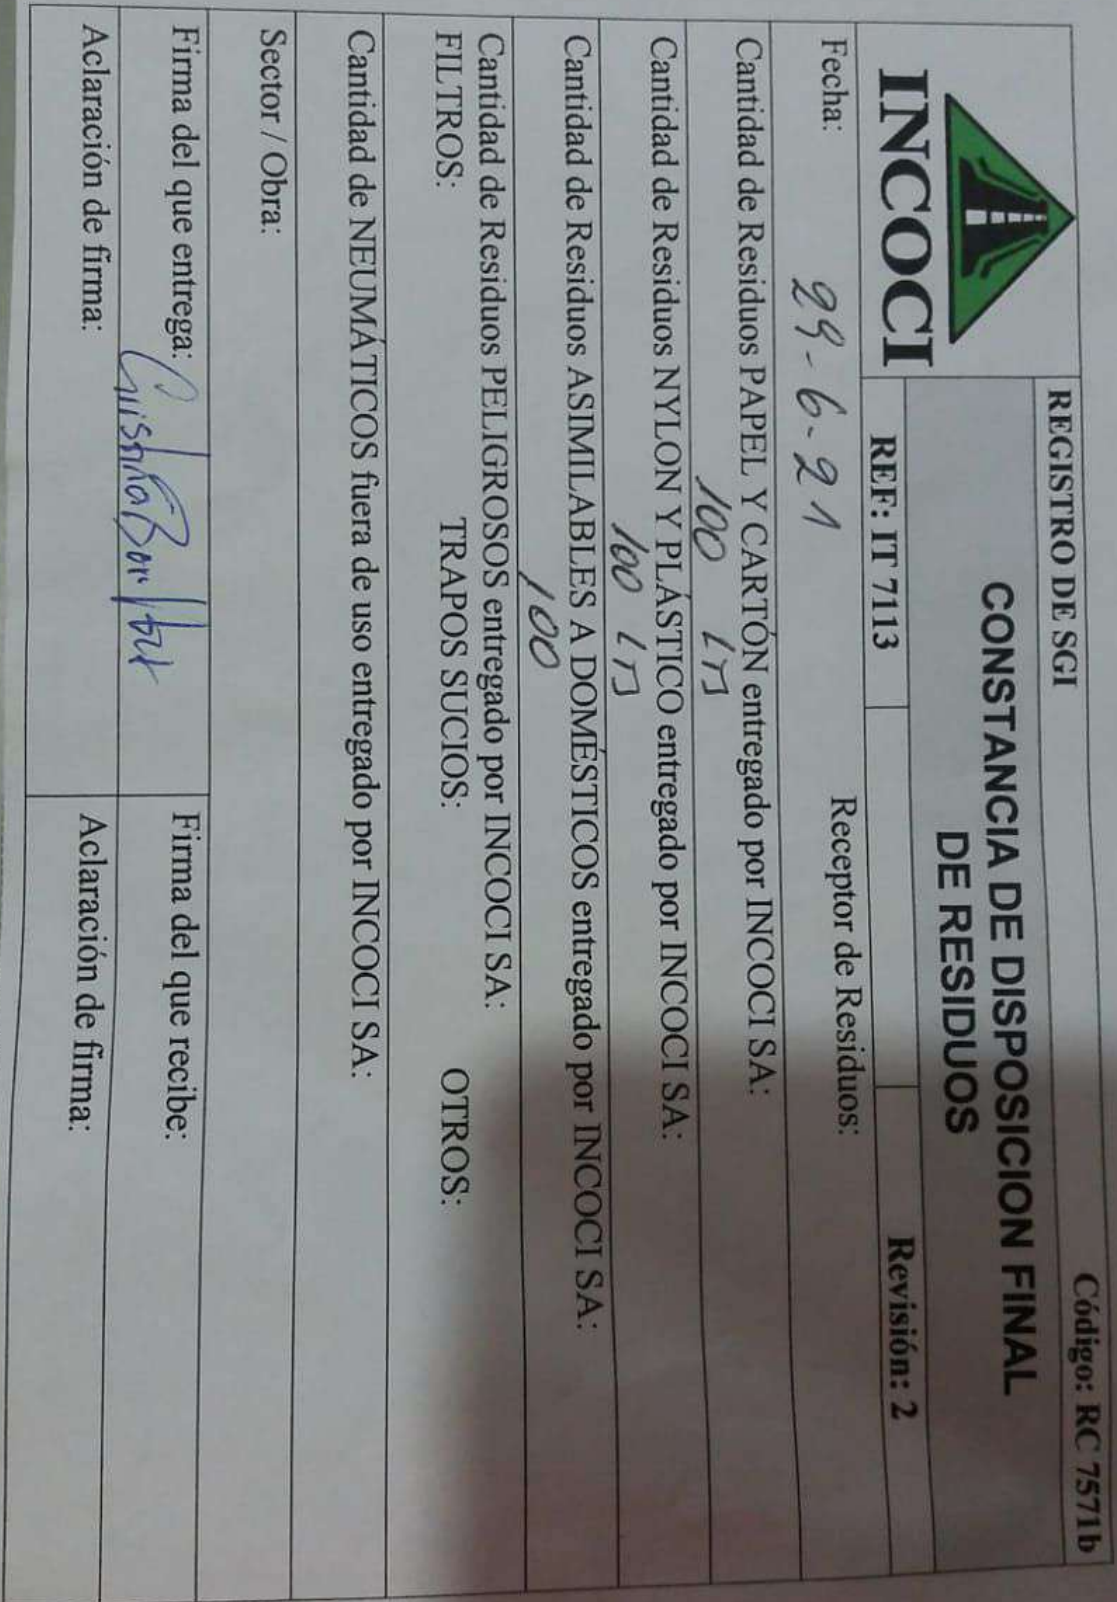 INCOCI
REGISTRO DE SGI
Código: RC 7571b
CONSTANCIA DE DISPOSICION FINAL
DE RESIDUOS
REF: IT 7113
Revisión: 2
Fecha: 29-6-21 Receptor de Residuos:
Cantidad de Residuos PAPEL Y CARTÓN entregado por INCOCI SA:
100 LTS
Cantidad de Residuos NYLON Y PLÁSTICO entregado por INCOCI SA:
100 LTS
Cantidad de Residuos ASIMILABLES A DOMÉSTICOS entregado por INCOCI SA:
100
Cantidad de Residuos PELIGROSOS entregado por INCOCI SA:
FILTROS: TRAPOS SUCIOS: OTROS:
Cantidad de NEUMÁTICOS fuera de uso entregado por INCOCI SA:
Sector / Obra:
Firma del que entrega: Firma del que recibe:
Aclaración de firma: Aclaración de firma: